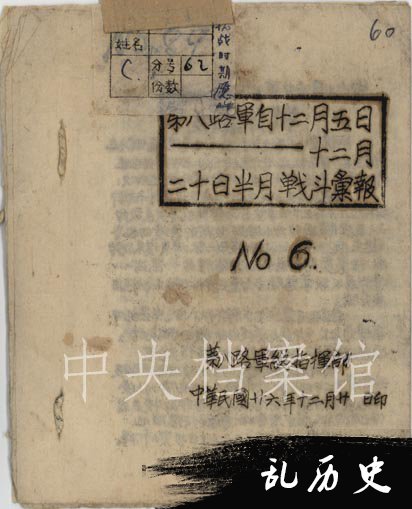 60
抗战时期
姓名
C.
分号 62
份数
第八路軍自十二月五日
十二月
二十日半月戰斗彙報
No 6.
中央档案馆
第八路軍總指揮部
中華民國廿六年十二月廿 日印
乱历史